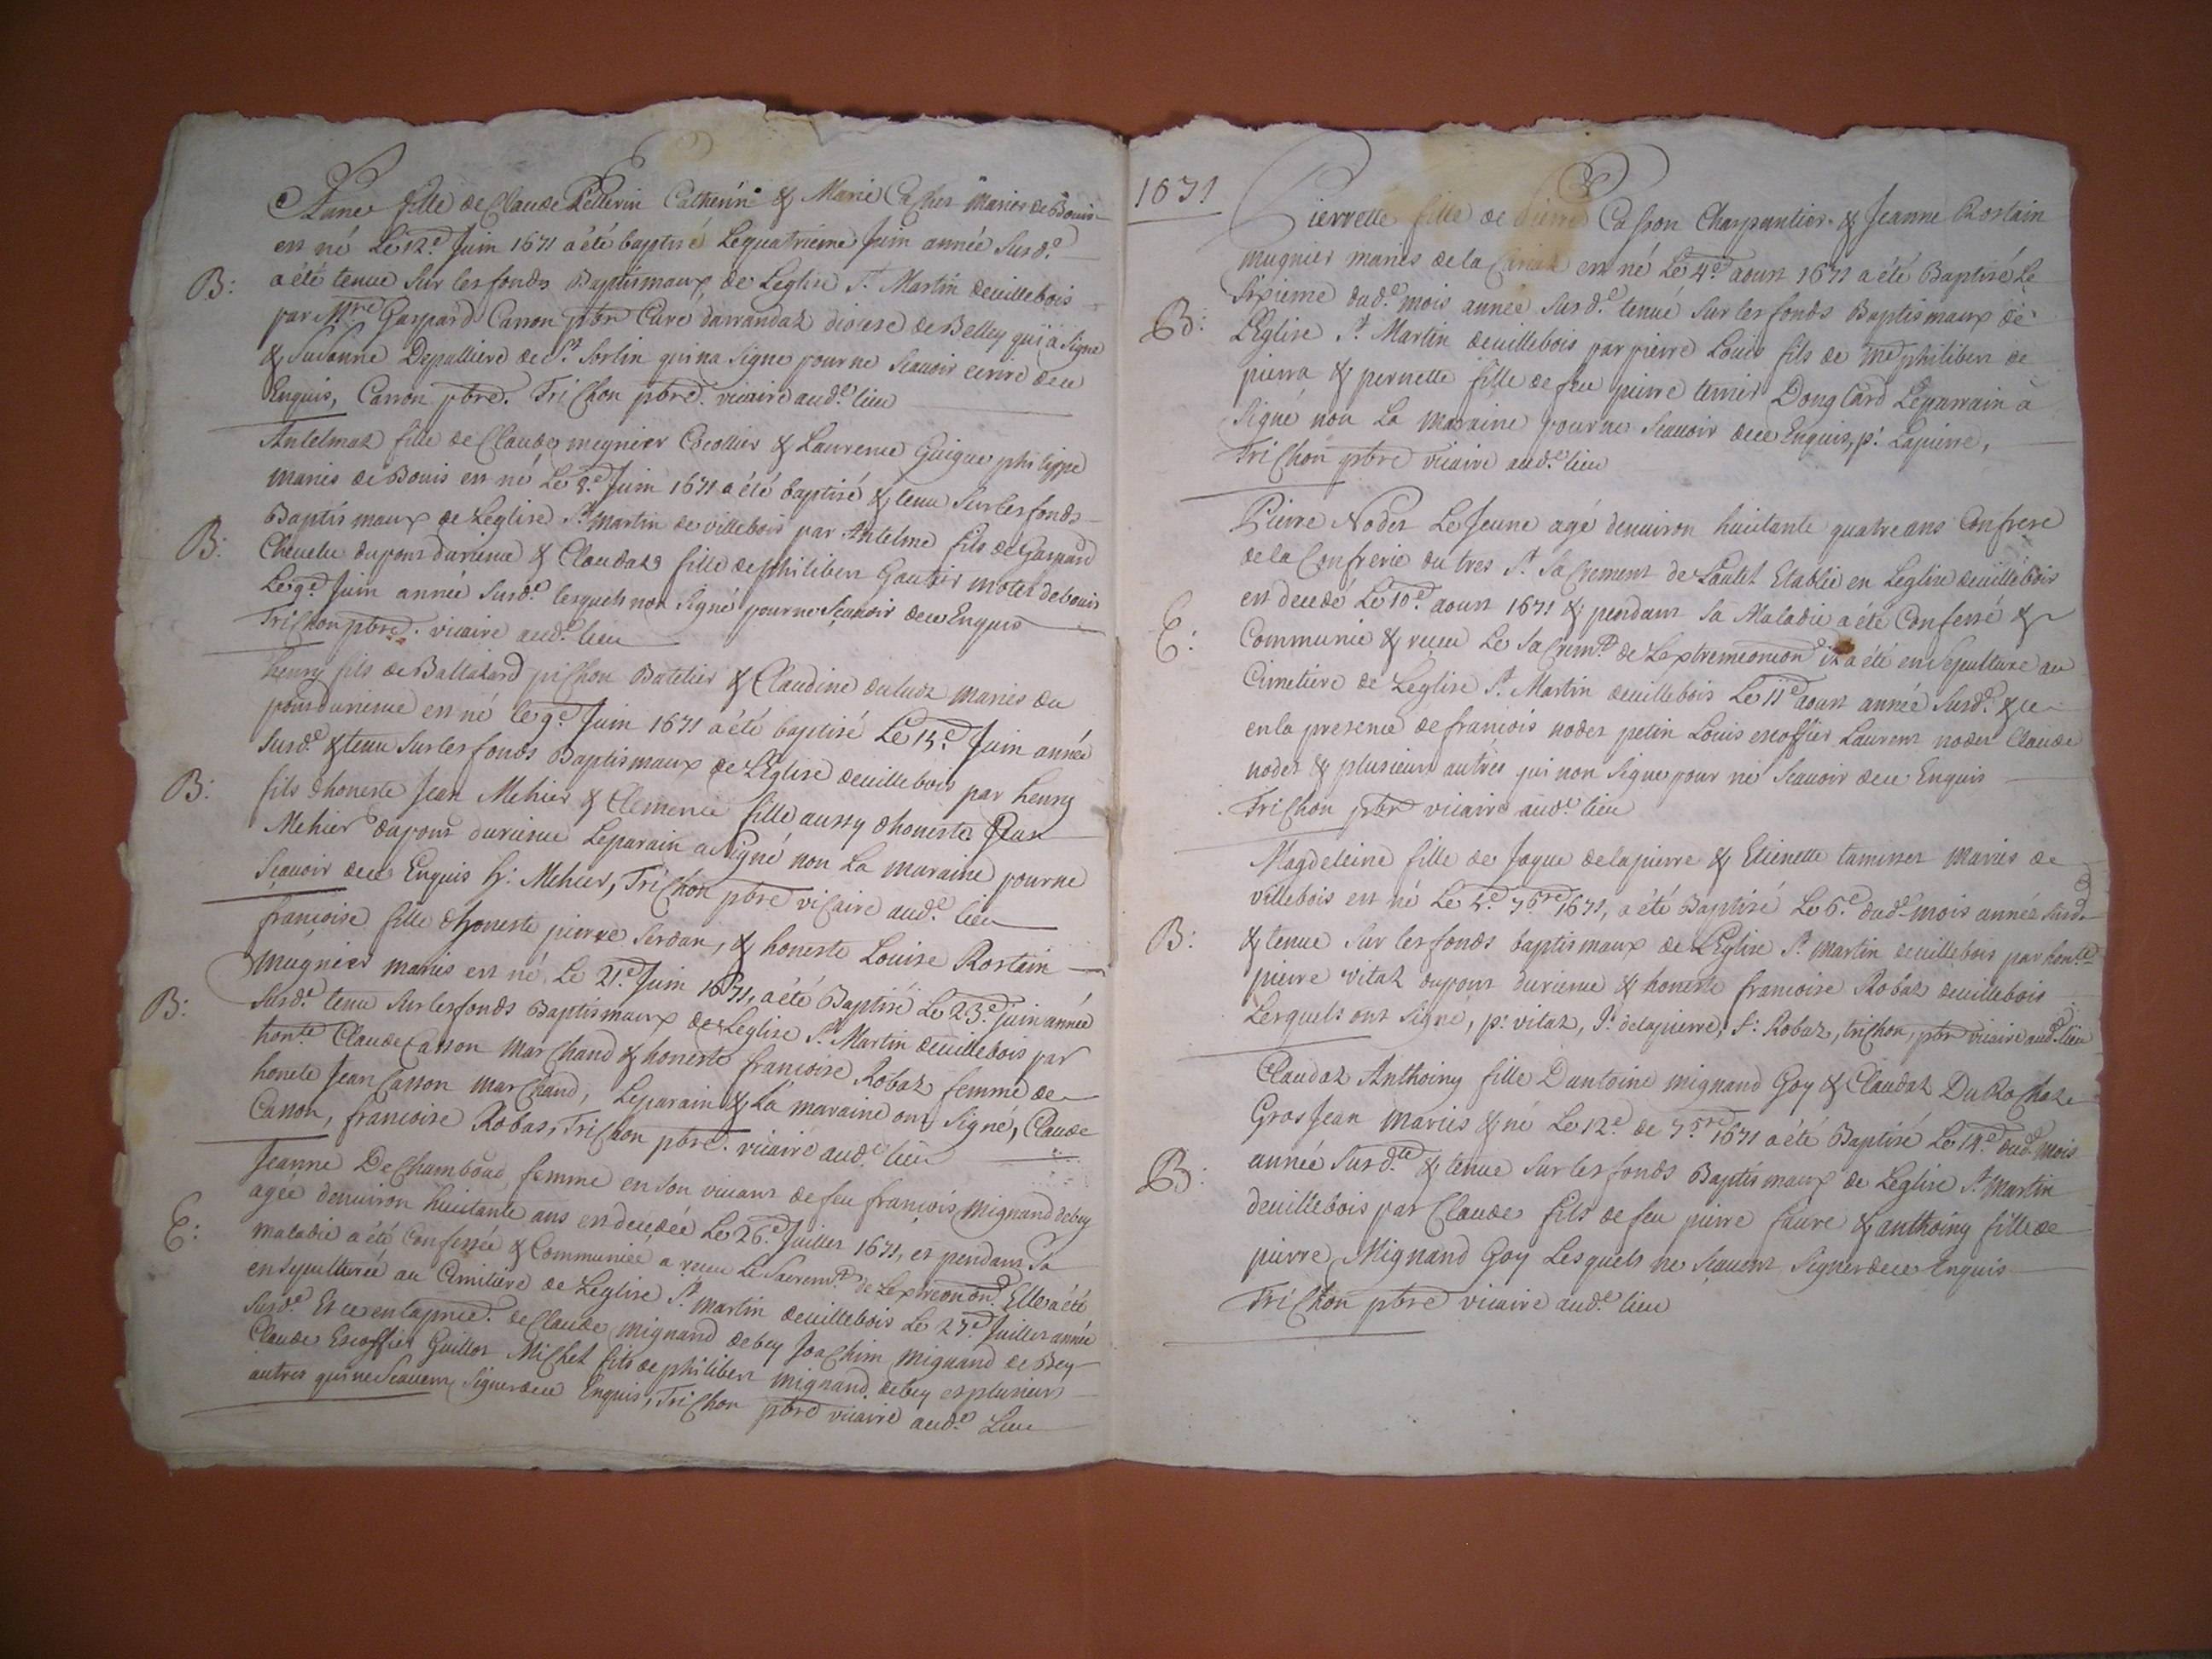 Anne fille de Claude Pellerin Catherin & Marie Caches mariés de Bouis
est né Le 12e. Juin 1671 a été baptisé Le quatrieme Juin année Susd.e
B: a été tenue Sur les fonds Baptismaux de Leglise St. Martin deuillebois
par Mre Gaspard Carron pbr Curé darrandaz diocese de Belley qui a Signé
& Susanne Depalliere de St. Sorlin qui na Signe pour ne Scauoir ecrire de ce
Enquis, Carron pbre. Trichon pbre. vicaire aud.e lieu
Antelmaz fille de Claude meynier Cocollier & Laurence Guigue philippe
mariés de Bouis est né Le 9.e Juin 1671 a été baptisé & tenu Sur les fonds
Baptismaux de Leglise St martin de villebois par Antelme fils de Gaspard
B: Cheuelu du pont durieue & Claudaz fille de philibert Gautier motet de bouis
Le 9.e Juin année Susd.e lesquels non Signé pour ne Sçauoir de ce Enquis
Trichon pbre. vicaire aud.e lieu
henry fils de Baltazard pichon Batelier & Claudine duludz mariés du
pont durieue est né le 9.e Juin 1671 a été baptisé Le 15.e Juin année
Susd.e & tenu Sur les fonds Baptismaux de LEglise deuillebois par henry
B: fils dhoneste Jean Mehier & Clemence fille aussy dhoneste Jean
Mehier du pont durieue Leparain a Signé non La maraine pour ne
Sçauoir de ce Enquis h: Mehier, Trichon pbre vicaire aud.e lieu
françoise fille dhoneste pierre Serdan, & honeste Louise Rostain
mugnier mariés est né Le 21.e Juin 1671, a été Baptisé Le 23.e Juin année
B: Susd.e tenu Sur les fonds Baptismaux de Leglise St. Martin deuillebois par
hon.te Claude Casson Marchand & honeste francoise Robaz femme de
honete Jean Casson marchand, Leparain & La maraine ont Signé, Claude
Casson, francoise Robas, Trichon pbre. vicaire aud.e lieu
Jeanne De Chamboud femme en son viuant de feu francois Mignand debey
agée denuiron huictante ans est decedée Le 26.e Juillet 1671, et pendant Sa
E: maladie a été Confessée & Communiée a receu Le Sacrem.t de Lextreonion. Elle a été
ensepulturée au Cimitiere de Leglise St. martin deuillebois Le 27.e Juillet année
Susd.e Et ce en la pnce. de Claude mignand debey Joachim mignand de Bey
Claude Escoffier Guillot Michel fils de philibert mignand debey et plusieurs
autres qui ne Scauent Signer de ce Enquis, Trichon pbre vicaire aud.e Lieu
1671
Pierrette fille de Pierre Casson Charpantier & Jeanne Rostain
mugnier mariés de la est né Le 4.e aoust 1671 a été Baptisé Le
Sixieme dud.e mois année Susd.e tenué Sur les fonds Baptismaux de
B: LEglise St. Martin deuillebois par pierre Louis fils de me philibert de
pierra & pernette fille de feu pierre ternier Donglard Leparrain à
Signé non La maraine pour ne Scauoir de ce Enquis, p: Lapierre,
Trichon pbre vicaire aud.e lieu
Pierre Nodet Le Jeune agé denuiron huictante quatre ans Confrere
de la Confrerie du tres St. Sacrement de Lautel Etablie en Leglise deuillebois
est decedé Le 10.e aoust 1671 & pendant Sa Maladie a été Confessé &
E: Communié & receu Le Sacrem.t de Lextremeonion Il a été ensepulture au
Cimetiere de Leglise St. Martin deuillebois Le 11e aoust année Susd.e & ce
en la presence de francois nodet petin Louis escoffier Laurent nodet Claude
nodet & plusieurs autres qui non Signe pour ne Scauoir de ce Enquis
Trichon pbr vicaire aud.e lieu
Magdeleine fille de Jaque delapierre & Etienette tamisset mariés de
villebois est né Le 5.e 7bre 1671, a été Baptisé Le 6.e dud.e mois année Susd.e
B: & tenue Sur les fonds baptismaux de LEglise St. martin deuillebois par hon.te
pierre vitaz du pont durieue & honeste francoise Robaz deuillebois
Lesquels ont Signé, p: vitaz, J: delapierre, f: Robaz, trichon, pbr vicaire aud.e lieu
Claudaz Anthoiny fille Dantoine mignand Goy & Claudaz Du Rochaz
Gros Jean mariés & né Le 12.e de 7bre 1671 a été Baptisé Le 14.e dud.e mois
B: année Susd.te & tenue Sur les fonds Baptismaux de Leglise St. martin
deuillebois par Claude fils de feu pierre faure & anthoiny fille de
pierre Mignand Goy Lesquels ne Sçauent Signer de ce Enquis
Trichon pbre vicaire aud.e lieu